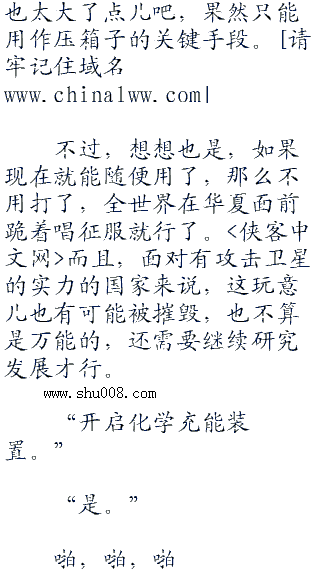 也太大了点儿吧，果然只能
用作压箱子的关键手段。[请
牢记住域名
www.china1ww.com|
不过，想想也是，如果
现在就能随便用了，那么不
用打了，全世界在华夏面前
跪着唱征服就行了。<侠客中
文网>而且，面对有攻击卫星
的实力的国家来说，这玩意
儿也有可能被摧毁，也不算
是万能的，还需要继续研究
发展才行。
www.shu008.com
“开启化学充能装
置。”
“是。”
啪，啪，啪